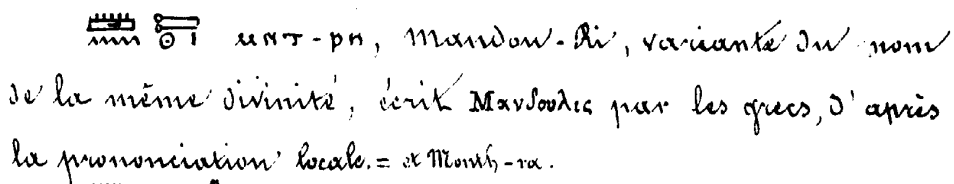 𓏠𓈖𓍿𓍿𓇳𓏤 ⲙⲛⲧ-ⲣⲏ, Mandou-Ri, variante du nom
de la même divinité, écrit Μανδουλις par les grecs, d'après
la prononciation locale. = et Month-ra.